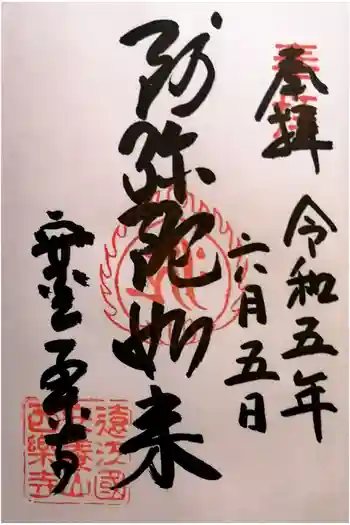 奉拝
令和五年
六月五日
阿弥陀如来
遠江國
安養山
西樂寺